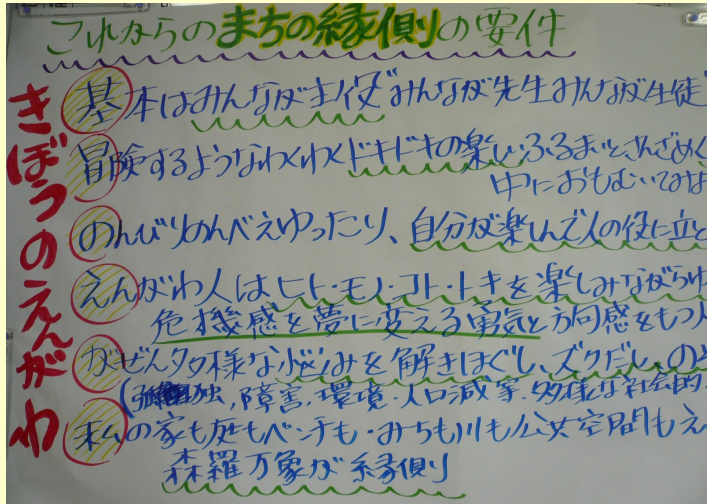 これからのまちの縁側の要件
きぼうのえんがわ
基本はみんなが主役"みんなが先生みんなが生徒"
冒険するようなわくわくドキドキの楽しいふるまいとさんざめく
中におもむいてみな
のんびりのんべえゆったり、自分が楽しんで人の役に立と
えんがわ人はヒト・モノ・コト・トキを楽しみながらゆ
危機感を夢に変える勇気と方向感をもつ人
がぜん多様な悩みを解きほぐし、ズクだし、のと
独,障害・環境・人口減家・多様な社会的
私の家も庭もベンチも・みちも川も公共空間もえ
森羅万象が縁側